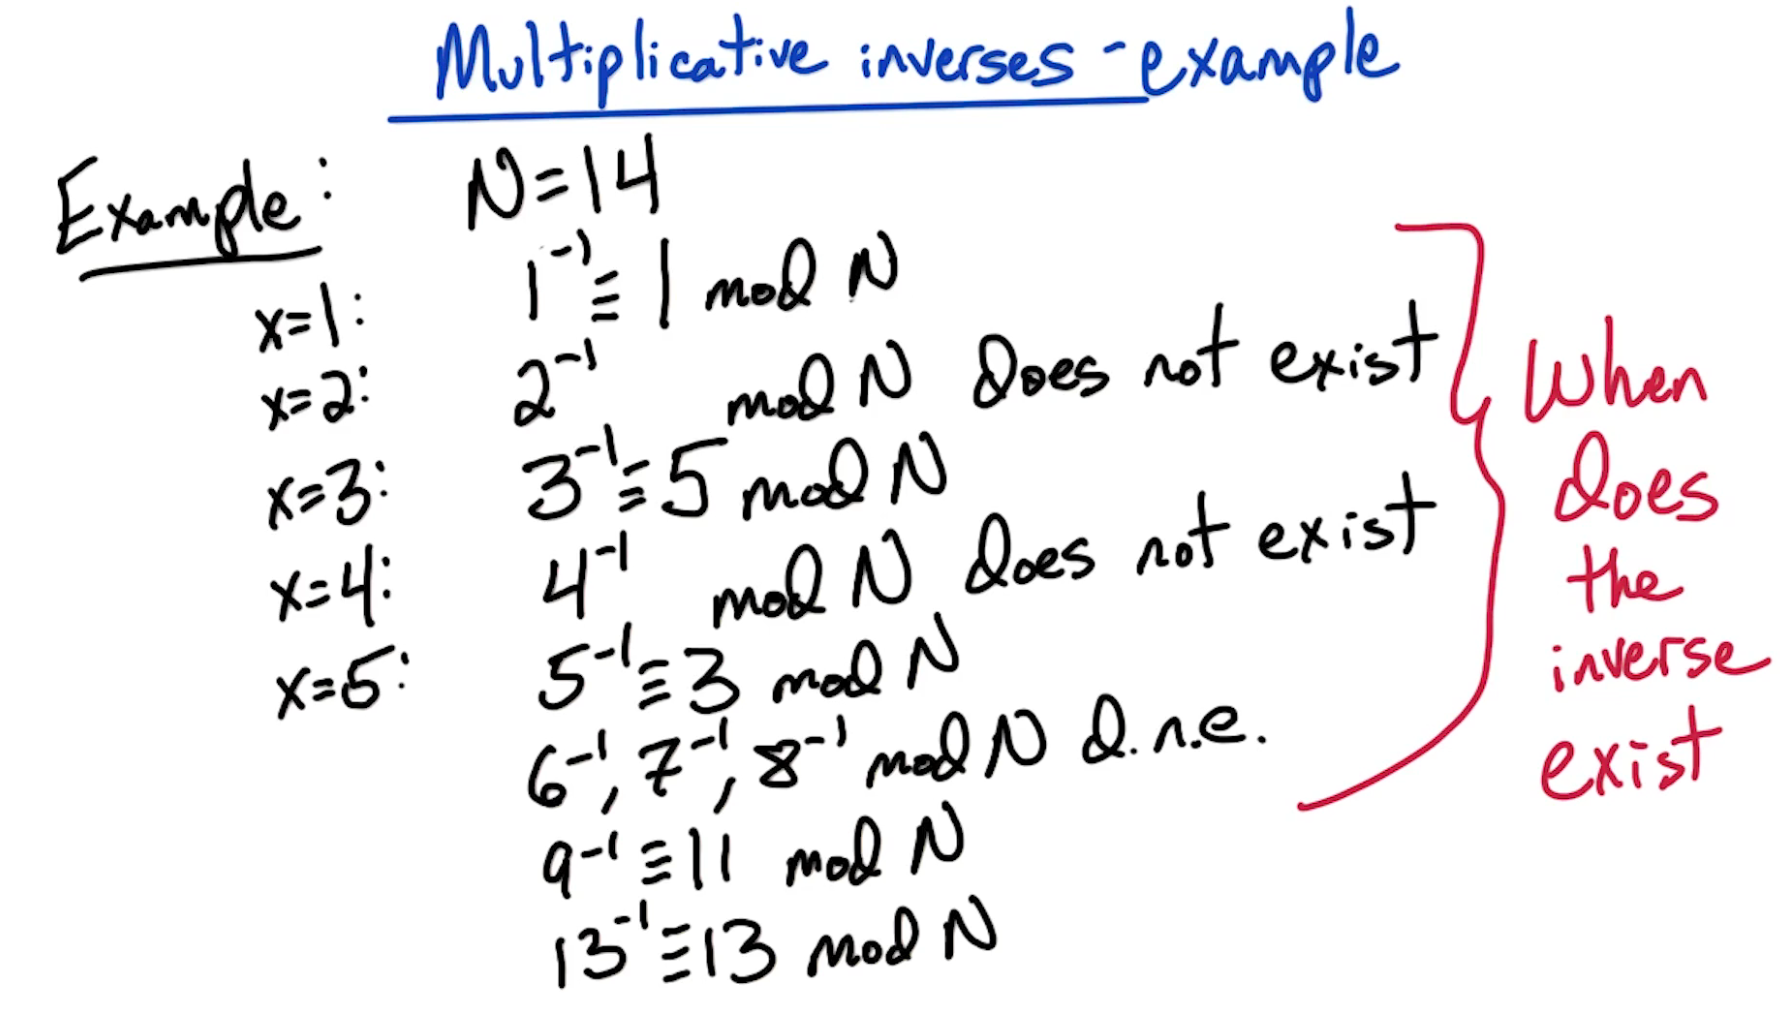 Multiplicative inverses - example
Example: N=14
x=1: 1⁻¹ ≡ 1 mod N
x=2: 2⁻¹ mod N does not exist
x=3: 3⁻¹ ≡ 5 mod N
x=4: 4⁻¹ mod N does not exist
x=5: 5⁻¹ ≡ 3 mod N
6⁻¹, 7⁻¹, 8⁻¹ mod N d.n.e.
9⁻¹ ≡ 11 mod N
13⁻¹ ≡ 13 mod N
When
does
the
inverse
exist